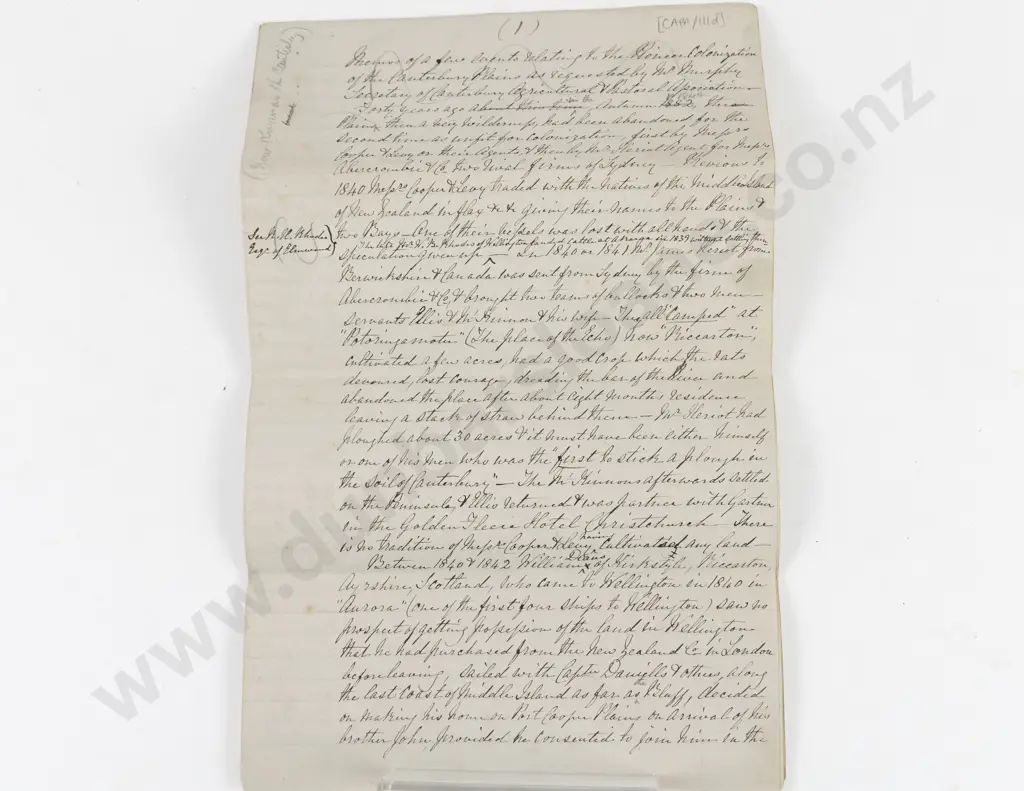 (1)
[CAM/111d]
Memoir of a few events relating to the Pioneer Colonization
of the Canterbury Plains as requested by Mr Murphy
Secretary of Canterbury Agricultural & Pastoral Association —
Forty years ago Autumn the
Plains then a dreary wilderness, had been abandoned for the
second time as unfit for colonization, first by Messrs
Cooper & Levy or their Agents, & then by Mr Heriot Agent for Messrs
Abercrombie & Co, two rival firms of Sydney — Previous to
1840 Messrs Cooper & Levy traded with the natives of the Middle Island
of New Zealand in flax &c &c giving their names to the Plains &
two Bays — One of their vessels was lost with all hands & the
See R. H. Rhodes
Esqr of Elmwood
The late W. B. Rhodes of Wellington landed cattle at Akaroa in 1839 without settling there
speculation given up — In 1840 or 1841 Mr James Heriot from
Berwickshire & Canada was sent from Sydney by the firm of
Abercrombie & Co, & brought two teams of bullocks & two men —
servants Ellis & McKinnon & his wife — They all "camped" at
"Potoringamotu" (The place of the Echo) now "Riccarton",
cultivated a few acres, had a good crop which the rats
devoured, lost courage, dreading the bar of the River and
abandoned the place after about eight months residence
leaving a stack of straw behind them — Mr Heriot had
ploughed about 30 acres & it must have been either himself
or one of his men who was the "first to stick a plough in
the soil of Canterbury" — The McKinnons afterwards settled
on the Peninsula, & Ellis returned & was partner with Gartner
in the Golden Fleece Hotel Christchurch — There
is no tradition of Messrs Cooper & Levy having cultivated any land —
Between 1840 & 1842 William Deans of Kirkstyle, Riccarton,
Ayrshire, Scotland, who came to Wellington in 1840 in
"Aurora" (one of the first four ships to Wellington) saw no
prospect of getting possession of the land in Wellington
that he had purchased from the New Zealand Co in London
before leaving, sailed with Captn Daniells & others, along
the East Coast of Middle Island as far as the Bluff, decided
on making his home on Port Cooper Plains on arrival of his
brother John, provided he consented to join him in the
www.dunbarsloane.co.nz